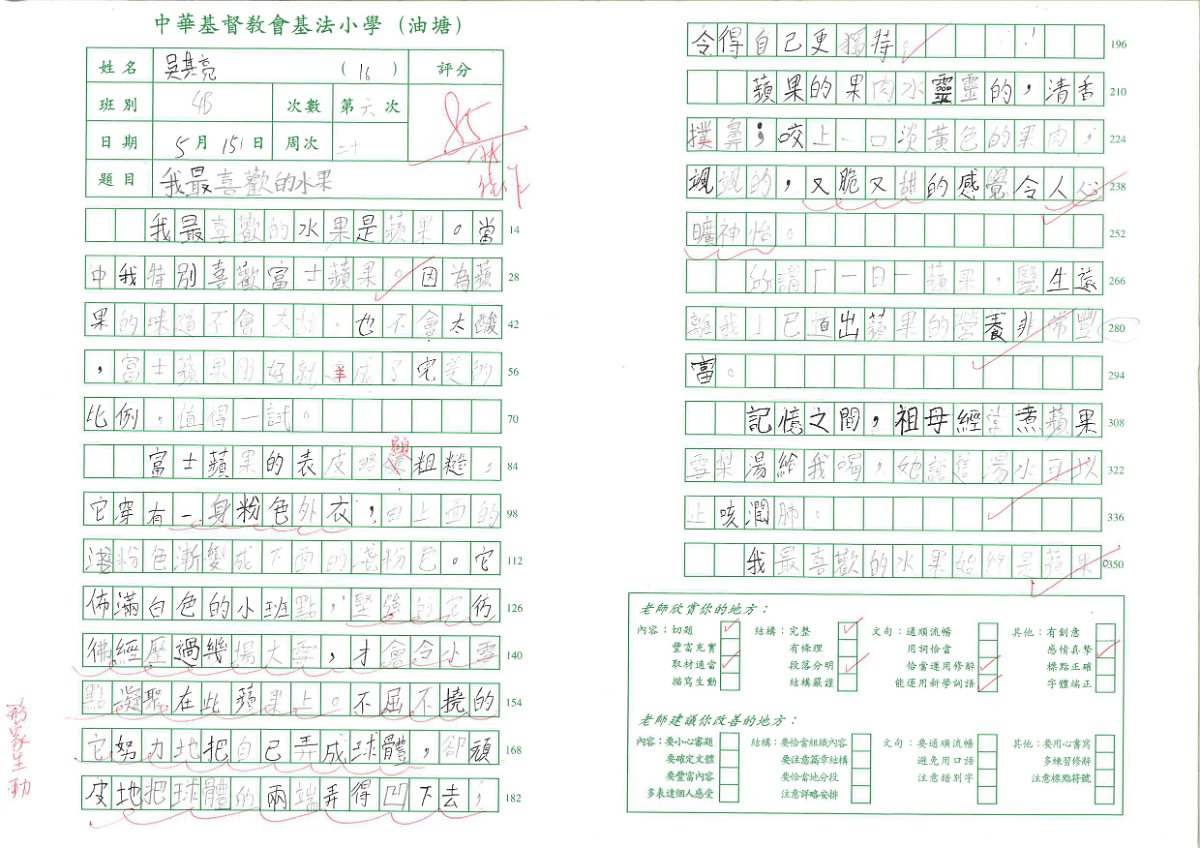 中華基督教會基法小學（油塘）
姓名 吳其亮 （16） 評分
班別 4B 次數 第六次
85
日期 5月15日 周次 二十
佳作
題目 我最喜歡的水果
我最喜歡的水果是蘋果。當 14
中我特別喜歡富士蘋果。因為蘋 28
果的味道不會太甜，也不會太酸 42
，富士蘋果剛好就半成了完美的 56
比例，值得一試。 70
富士蘋果的表皮略顯粗糙， 84
它穿有一身粉色外衣，由上面的 98
淺粉色漸變成下面的淺粉色。它 112
佈滿白色的小斑點，堅強的它仿 126
佛經歷過幾場大雪，才會令小雪 140
點凝聚在此蘋果上。不屈不撓的 154
它努力地把自己弄成球體，卻頑 168
皮地把球體的兩端弄得凹下去， 182
形象生動
令得自己更獨特。 196
蘋果的果肉水靈靈的，清香 210
撲鼻；咬上一口淡黃色的果肉， 224
颯颯的，又脆又甜的感覺令人心 238
曠神怡。 252
所謂「一日一蘋果，醫生遠 266
離我」已道出蘋果的營養非常豐 280
富。 294
記憶之間，祖母經常煮蘋果 308
雪梨湯給我喝，她說這湯水可以 322
止咳潤肺。 336
我最喜歡的水果始終是蘋果。 350
老師欣賞你的地方：
內容：切題 結構：完整 文句：通順流暢 其他：有創意
豐富充實 有條理 用詞恰當 感情真摯
取材適當 段落分明 恰當運用修辭 標點正確
描寫生動 結構嚴謹 能運用新學詞語 字體端正
老師建議你改善的地方：
內容：要小心審題 結構：要恰當組織內容 文句：要通順流暢 其他：要用心書寫
要確定文體 要注意篇章結構 避免用口語 多練習修辭
要豐富內容 要恰當地分段 注意錯別字 注意標點符號
多表達個人感受 注意詳略安排